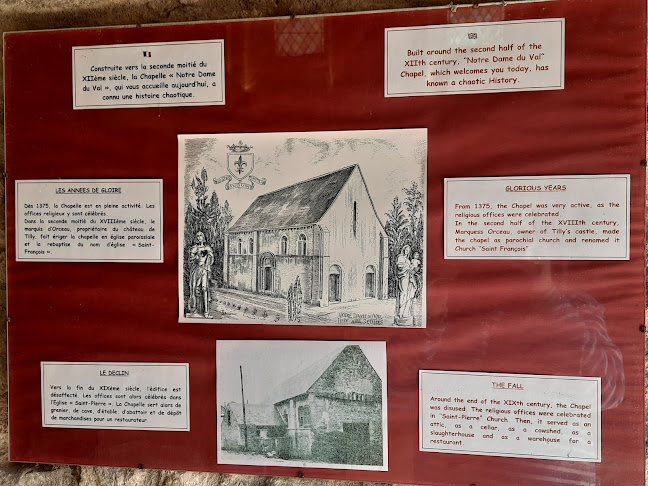 Construite vers la seconde moitié du
XIIème siècle, la Chapelle « Notre Dame
du Val », qui vous accueille aujourd'hui, a
connu une histoire chaotique.
Built around the second half of the
XIIth century, "Notre Dame du Val"
Chapel, which welcomes you today, has
known a chaotic History.
LES ANNEES DE GLOIRE
Dès 1375, la Chapelle est en pleine activité. Les
offices religieux y sont célébrés.
Dans la seconde moitié du XVIIIème siècle, le
marquis d'Orceau, propriétaire du château de
Tilly, fait ériger la chapelle en église paroissiale
et la rebaptise du nom d'église « Saint-
François ».
GLORIOUS YEARS
From 1375, the Chapel was very active, as the
religious offices were celebrated.
In the second half of the XVIIIth century,
Marquess Orceau, owner of Tilly's castle, made
the chapel as parochial church and renamed it
Church "Saint François".
LE DÉCLIN
Vers la fin du XIXème siècle, l'édifice est
désaffecté. Les offices sont alors célébrés dans
l'Eglise « Saint-Pierre ». La Chapelle sert alors de
grenier, de cave, d'étable, d'abattoir et de dépôt
de marchandises pour un restaurateur
THE FALL
Around the end of the XIXth century, the Chapel
was disused. The religious offices were celebrated
in "Saint-Pierre" Church. Then, it served as an
attic, as a cellar, as a cowshed, as a
slaughterhouse and as a warehouse for a
restaurant.